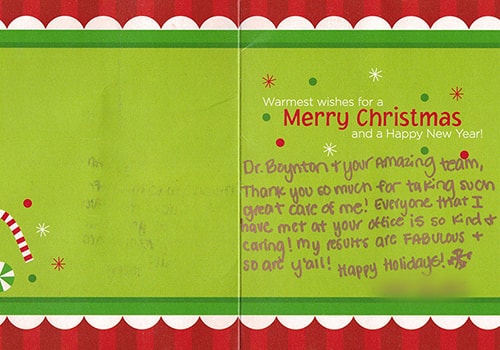 Warmest wishes for a
Merry Christmas
and a Happy New Year!
Dr. Boynton + your Amazing team,
Thank you so much for taking such
great care of me! Everyone that I
have met at your office is so kind +
caring! my results are FABULOUS +
so are y'all! Happy Holidays!